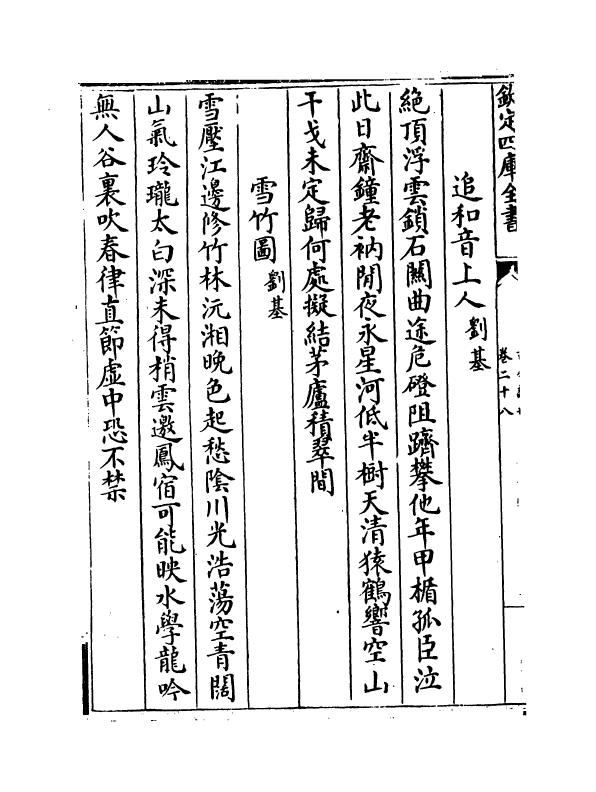 欽定四庫全書
卷二十八
追和音上人 劉基
絕頂浮雲鎖石關曲途危磴阻躋攀他年甲楯孤臣泣
此日齋鐘老衲閒夜永星河低半樹天清猿鶴響空山
干戈未定歸何處擬結茅廬積翠間
雪竹圖 劉基
雪壓江邊修竹林沅湘晚色起愁陰川光浩蕩空青闊
山氣玲瓏太白深未得梢雲邀鳳宿可能映水學龍吟
無人谷裏吹春律直節虛中恐不禁